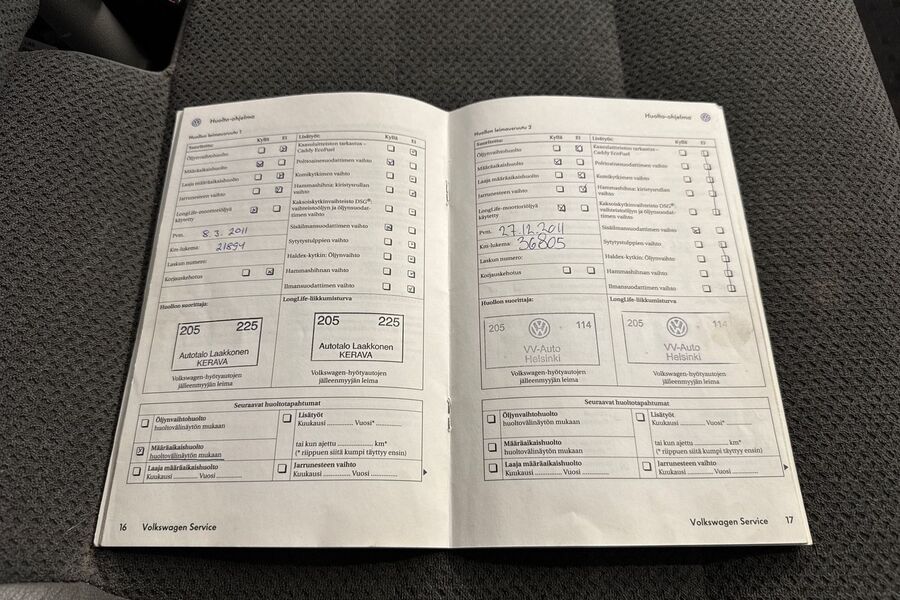 Huolto-ohjelma
Huollon leimausruutu 1
Suoritettu: Kyllä Ei
Öljynvaihtohuolto
Määräaikaishuolto
Laaja määräaikaishuolto
Jarrunesteen vaihto
LongLife-moottoriöljyä
käytetty
Pvm. 8.3.2011
Km-lukema: 21894
Laskun numero:
Korjauskehotus
Lisätyöt: Kyllä Ei
Kaasulaitteiston tarkastus –
Caddy EcoFuel
Polttoainesuodattimen vaihto
Kumikytkimen vaihto
Hammashihna: kiristysrullan
vaihto
Kaksoiskytkinvaihteisto DSG®:
vaihteistoöljyn ja öljynsuodat-
timen vaihto
Sisäilmansuodattimen vaihto
Sytytystulppien vaihto
Haldex-kytkin: Öljynvaihto
Hammashihnan vaihto
Ilmansuodattimen vaihto
Huollon suorittaja:
LongLife-liikkumisturva
205 225
Autotalo Laakkonen
KERAVA
205 225
Autotalo Laakkonen
KERAVA
Volkswagen-hyötyautojen
jälleenmyyjän leima
Volkswagen-hyötyautojen
jälleenmyyjän leima
Seuraavat huoltotapahtumat
Öljynvaihtohuolto
huoltovälinäytön mukaan
Määräaikaishuolto
huoltovälinäytön mukaan
Laaja määräaikaishuolto
Kuukausi ............ Vuosi ............
Lisätyöt
Kuukausi ............ Vuosi* ............
tai kun ajettu ............ km*
(* riippuen siitä kumpi täyttyy ensin)
Jarrunesteen vaihto
Kuukausi ............ Vuosi ............
16 Volkswagen Service
Huolto-ohjelma
Huollon leimausruutu 2
Suoritettu: Kyllä Ei
Öljynvaihtohuolto
Määräaikaishuolto
Laaja määräaikaishuolto
Jarrunesteen vaihto
LongLife-moottoriöljyä
käytetty
Pvm. 27.12.2011
Km-lukema: 36805
Laskun numero:
Korjauskehotus
Lisätyöt: Kyllä Ei
Kaasulaitteiston tarkastus –
Caddy EcoFuel
Polttoainesuodattimen vaihto
Kumikytkimen vaihto
Hammashihna: kiristysrullan
vaihto
Kaksoiskytkinvaihteisto DSG®:
vaihteistoöljyn ja öljynsuodat-
timen vaihto
Sisäilmansuodattimen vaihto
Sytytystulppien vaihto
Haldex-kytkin: Öljynvaihto
Hammashihnan vaihto
Ilmansuodattimen vaihto
Huollon suorittaja:
LongLife-liikkumisturva
205 114
VV-Auto
Helsinki
205 114
VV-Auto
Helsinki
Volkswagen-hyötyautojen
jälleenmyyjän leima
Volkswagen-hyötyautojen
jälleenmyyjän leima
Seuraavat huoltotapahtumat
Öljynvaihtohuolto
huoltovälinäytön mukaan
Määräaikaishuolto
huoltovälinäytön mukaan
Laaja määräaikaishuolto
Kuukausi ............ Vuosi ............
Lisätyöt
Kuukausi ............ Vuosi* ............
tai kun ajettu ............ km*
(* riippuen siitä kumpi täyttyy ensin)
Jarrunesteen vaihto
Kuukausi ............ Vuosi ............
Volkswagen Service 17